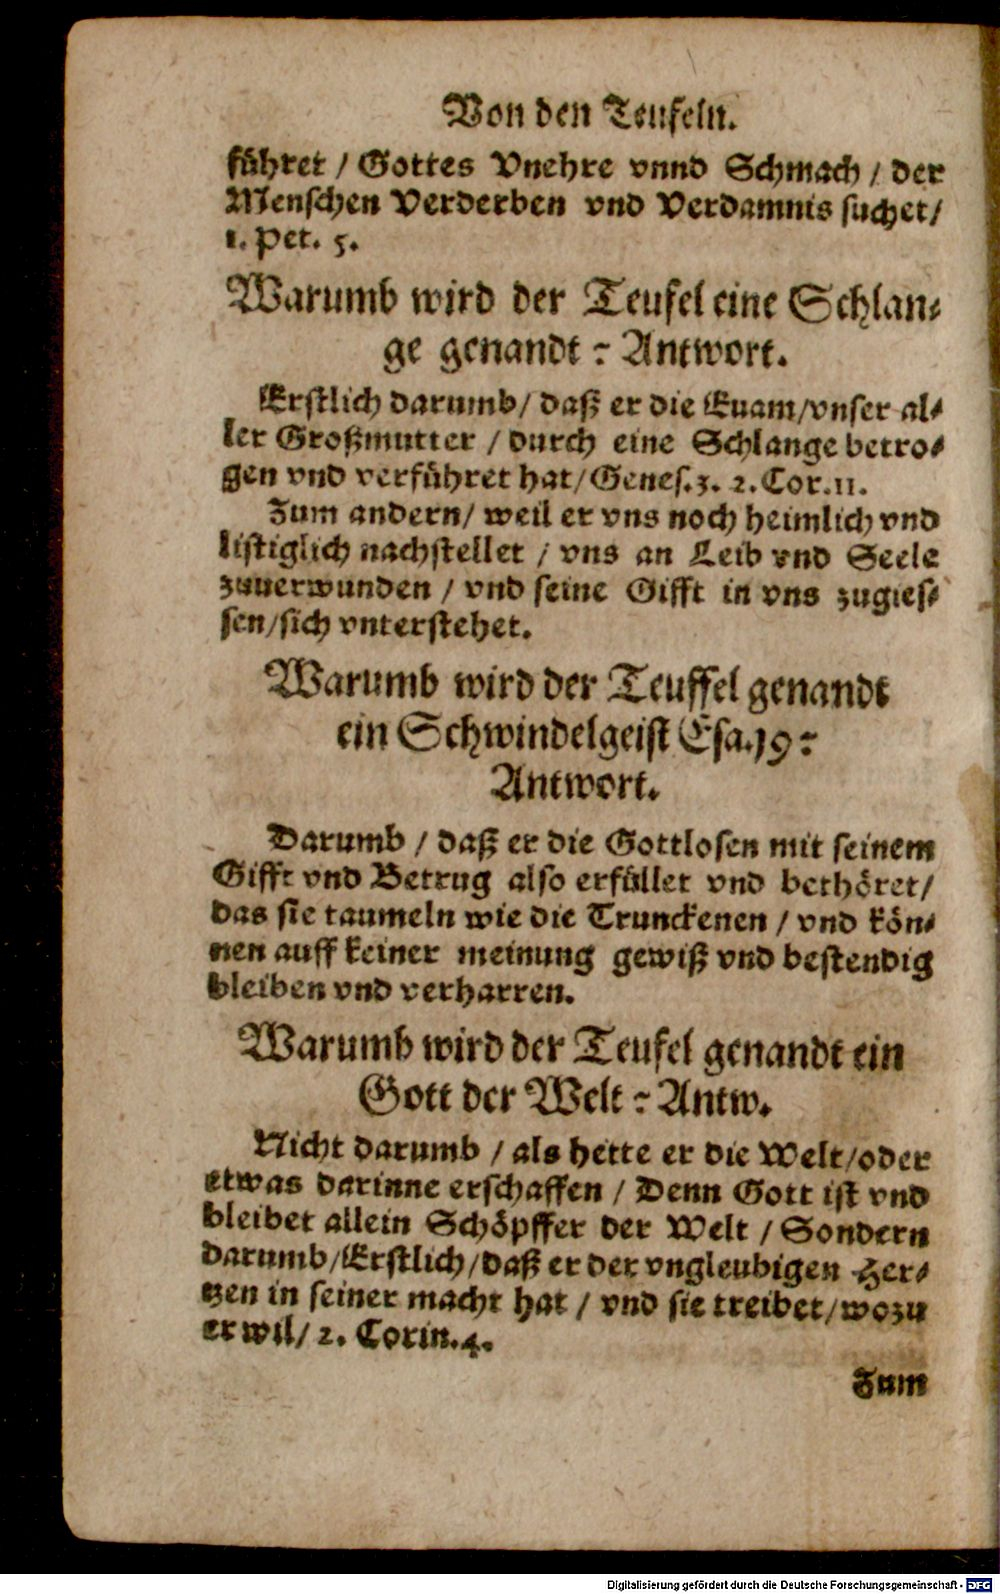 Von den Teufeln.
führet / Gottes Vnehre vnnd Schmach / der
Menschen Verderben vnd Verdamnis suchet/
1. Pet. 5.
Warumb wird der Teufel eine Schlan-
ge genandt? Antwort.
Erstlich darumb/ daß er die Euam/vnser al-
ler Großmutter / durch eine Schlange betro-
gen vnd verführet hat/ Genes.3. 2.Cor.11.
Zum andern/ weil er vns noch heimlich vnd
listiglich nachstellet / vns an Leib vnd Seele
zuuerwunden / vnd seine Gifft in vns zugies-
sen/sich vnterstehet.
Warumb wird der Teuffel genandt
ein Schwindelgeist Esa.19?
Antwort.
Darumb / daß er die Gottlosen mit seinem
Gifft vnd Betrug also erfüllet vnd bethöret/
das sie taumeln wie die Trunckenen / vnd kön-
nen auff keiner meinung gewiß vnd bestendig
bleiben vnd verharren.
Warumb wird der Teufel genandt ein
Gott der Welt? Antw.
Nicht darumb / als hette er die Welt/oder
etwas darinne erschaffen / Denn Gott ist vnd
bleibet allein Schöpffer der Welt / Sondern
darumb/Erstlich/daß er der vngleubigen Her-
tzen in seiner macht hat / vnd sie treibet/wozu
er wil/ 2. Corin.4.
Zum
Digitalisierung gefördert durch die Deutsche Forschungsgemeinschaft - DFG